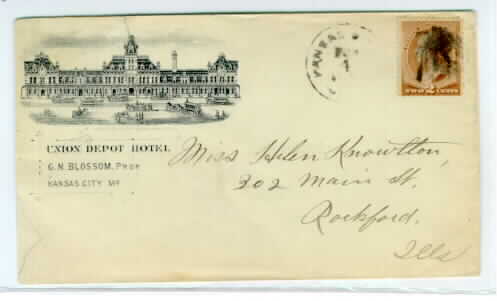 UNION DEPOT HOTEL
G. N. BLOSSOM, PROP
KANSAS CITY. MO
KANSAS
TWO 2 CENTS
Miss Helen Knowlton,
202 Main St.
Rockford.
Ills